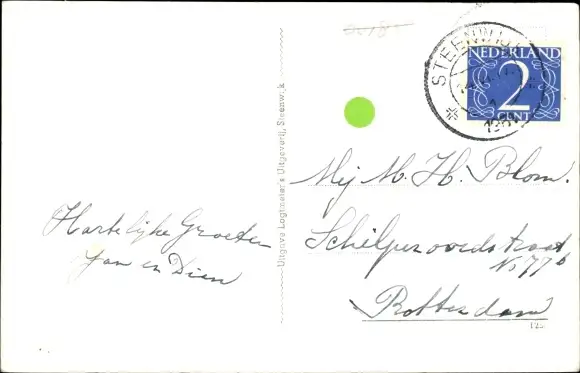 STEENWIJK
NEDERLAND
2
CENT
Mej M. H. Blom.
Schilperoordstraat
No 77b
Rotterdam
Hartelijke Groeten
Jan en Dien
Uitgave Logtmeier's Uitgeverij, Steenwijk